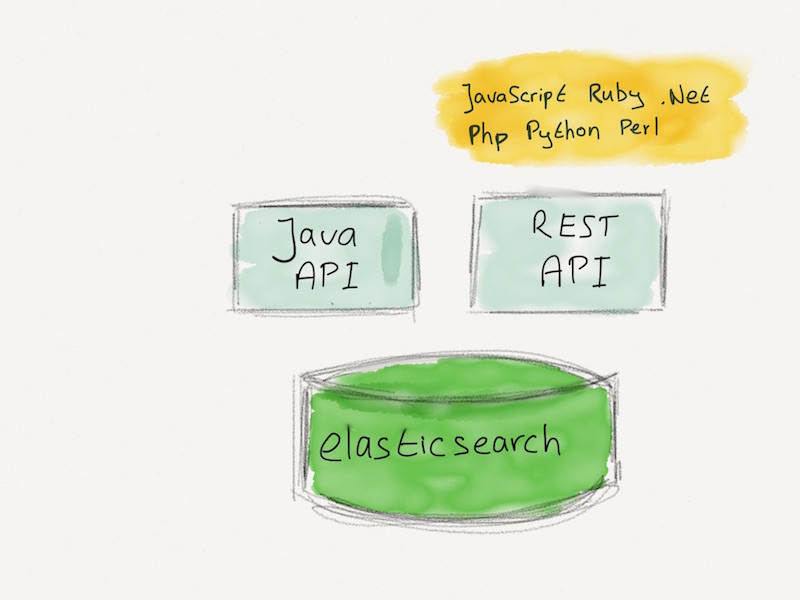 JavaScript Ruby .Net
Php Python Perl
Java
API
REST
API
elasticsearch